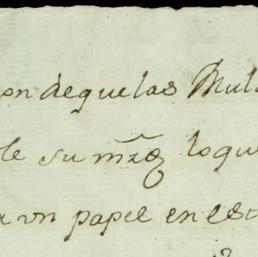 on de que las Mul
le su mrẓ lo que
r vn papel en est